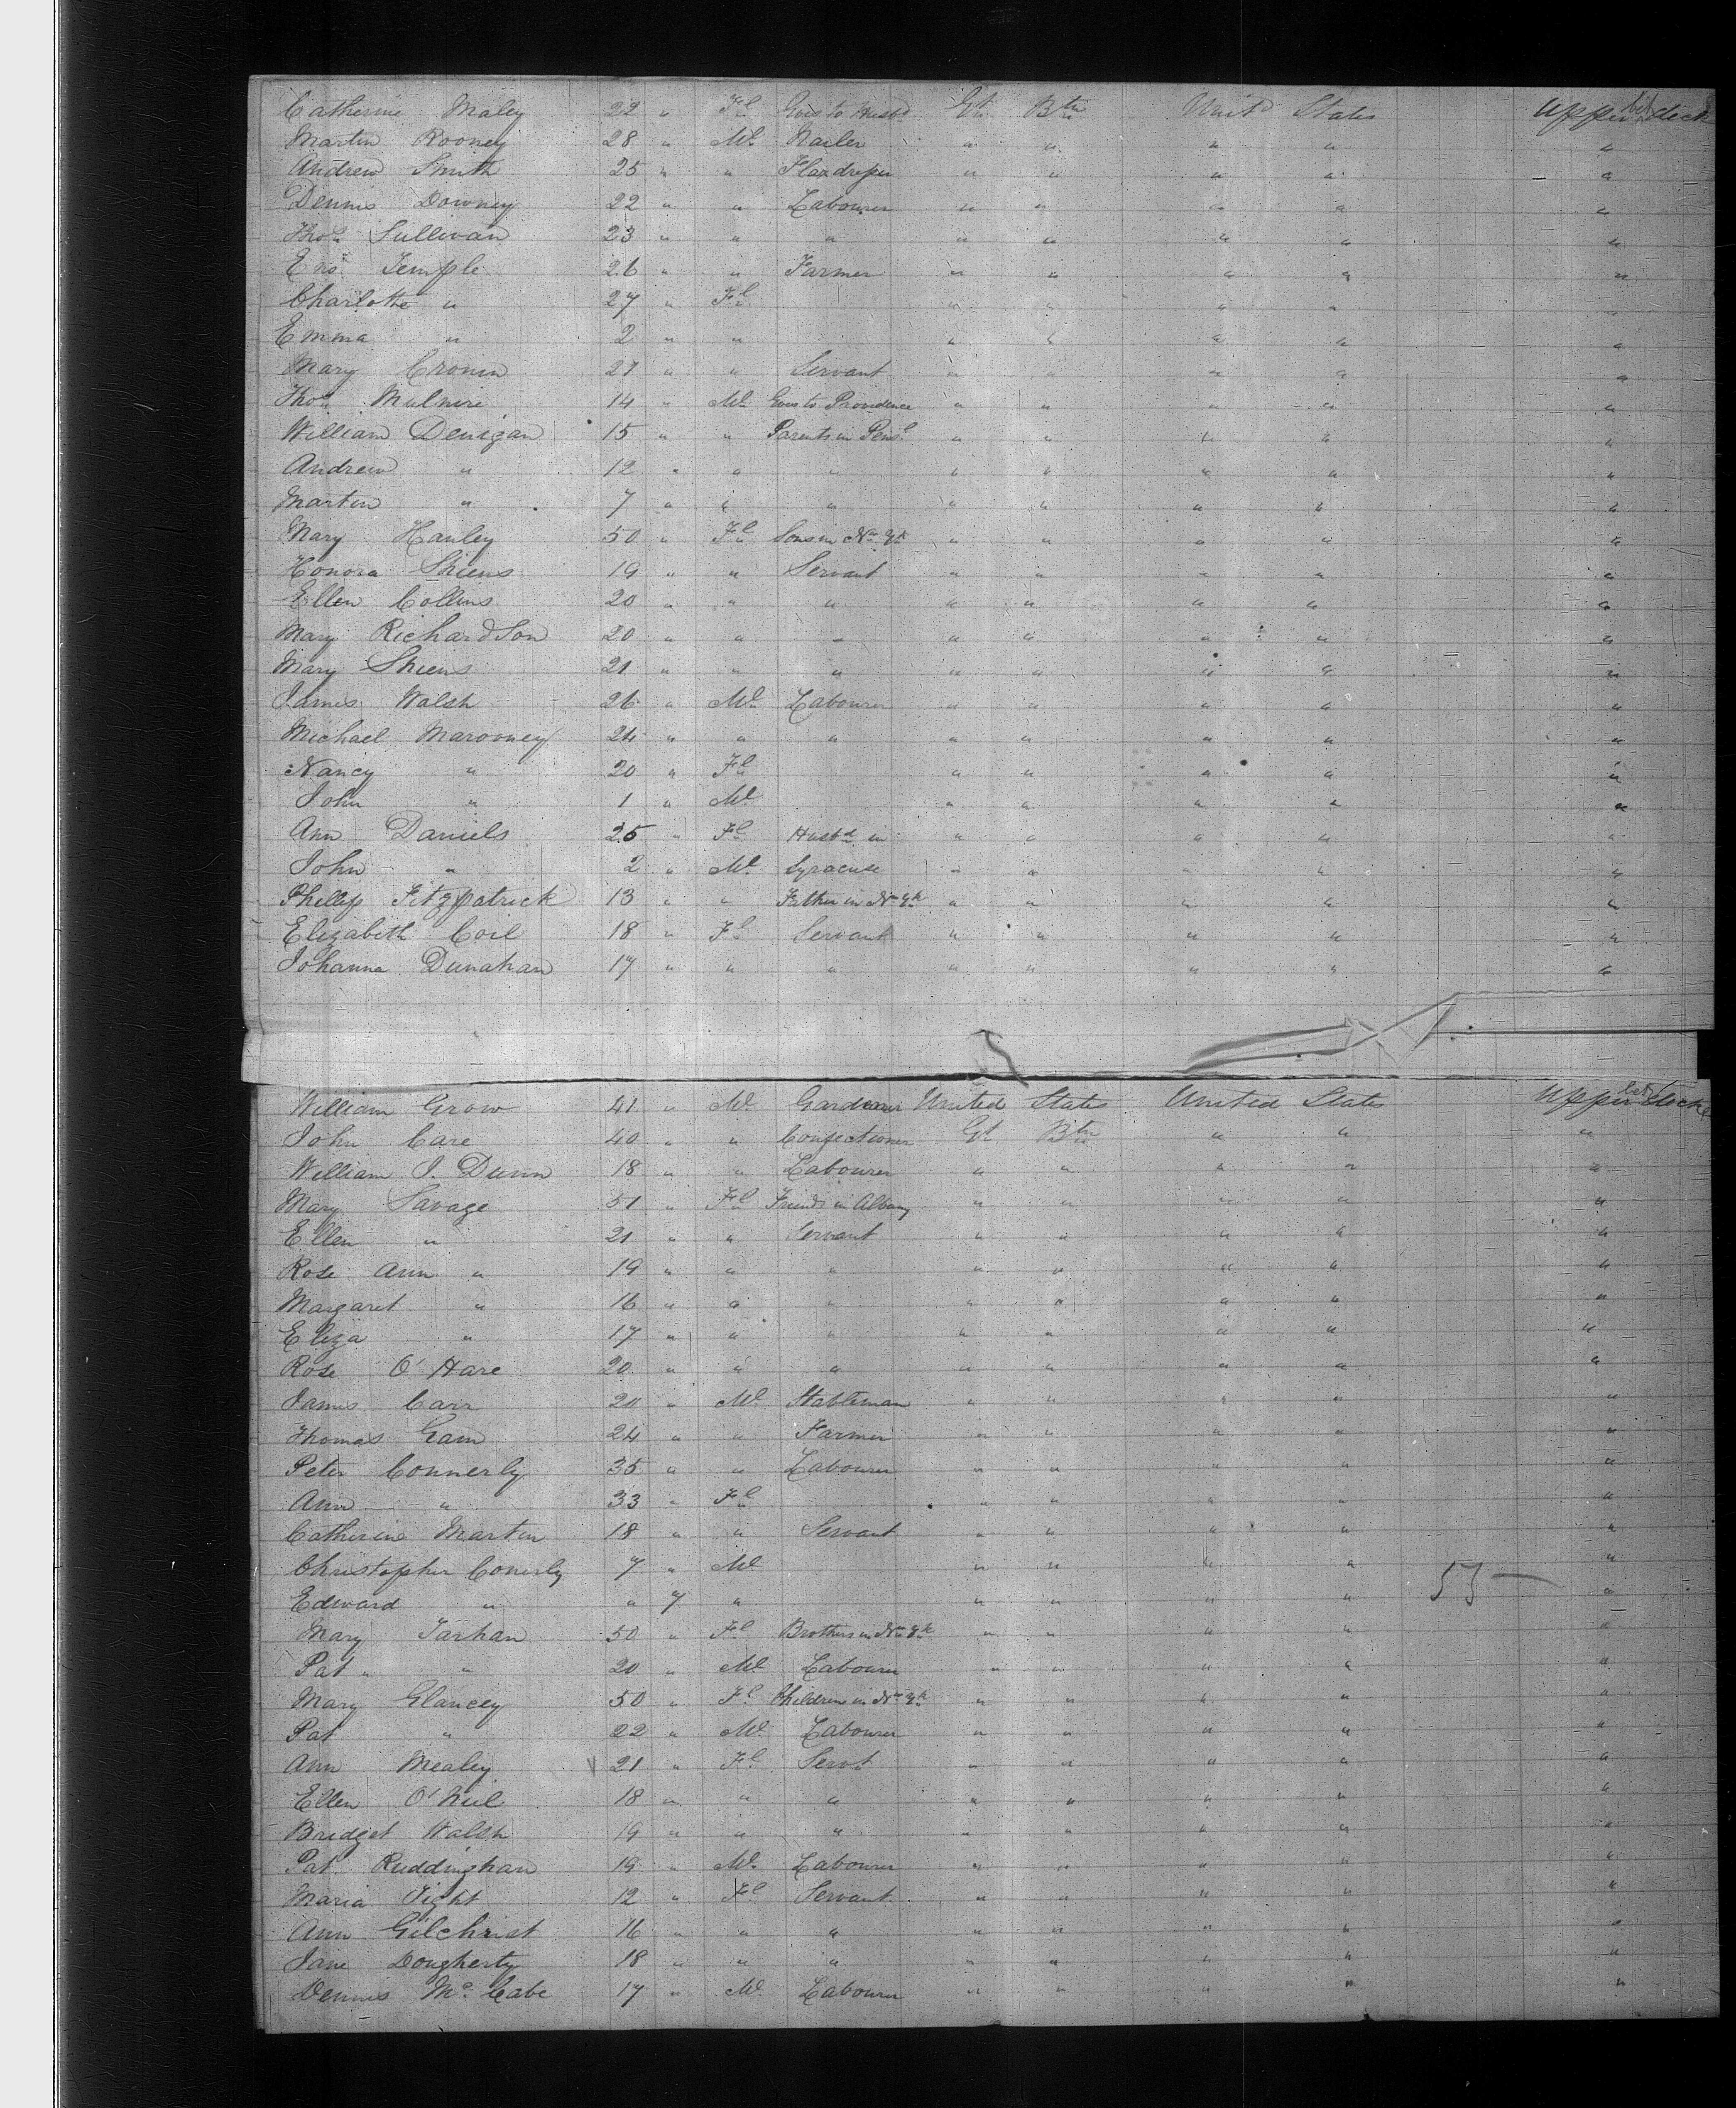 Catherine Maley 22 " Fl Goes to Husbd Gt Btn Unitd States Upper bet deck
Martin Rooney 28 " Ml Nailer " " " " "
Andrew Smith 25 " " Flaxdresser " " " " "
Dennis Downey 22 " " Labourer " " " " "
Thos Sullivan 23 " " " " " " " "
Temple 26 " " Farmer " " " " "
Charlotte " 27 " Fl " " " " "
Emma " 2 " " " " " " "
Mary Cronin 27 " " Servant " " " " "
Thos Mulnire 14 " Ml Goes to Providence " " " " "
William Denigan 15 " " Parents in Pensl " " " " "
Andrew " 12 " " " " " " " "
Martin " 7 " " " " " " " "
Mary Hanley 50 " Fl Sons in Nw Yk " " " " "
Honora Shiens 19 " " Servant " " " " "
Ellen Collins 20 " " " " " " " "
Mary Richardson 20 " " " " " " " "
Mary Shiens 21 " " " " " " " "
James Walsh 26 " Ml Labourer " " " " "
Michael Marooney 24 " " " " " " " "
Nancy " 20 " Fl " " " " "
John " 1 " Ml " " " " "
Ann Daniels 25 " Fl Husbd in " " " " "
John " 2 " Ml Syracuse " " " " "
Phillip Fitzpatrick 13 " " Father in Nw Yk " " " " "
Elizabeth Coil 18 " Fl Servant " " " " "
Johanna Dunahan 17 " " " " " " " "
William Grow 41 " Ml Gardener United States United States Upper bet decks
John Care 40 " " Confectioner Gt Btn " " "
William J. Dunn 18 " " Labourer " " " " "
Mary Savage 51 " Fl Friends in Albany " " " " "
Ellen " 21 " " Servant " " " " "
Rose Ann " 19 " " " " " " " "
Margaret " 16 " " " " " " " "
Eliza " 17 " " " " " " " "
Rose O'Hare 20 " " " " " " " "
James Carr 20 " Ml Stableman " " " " "
Thomas Gam 24 " " Farmer " " " " "
Peter Connerly 35 " " Labourer " " " " "
Ann " 33 " Fl " " " " "
Catherine Martin 18 " " Servant " " " " "
Christopher Conerly 7 " Ml " " " " "
Edward " " 7 " " " " " 53 — "
Mary Tarhan 50 " Fl Brothers in Nw Yk " " " " "
Pat " " 20 " Ml Labourer " " " " "
Mary Glancey 50 " Fl Children in Nw Yk " " " " "
Pat " 22 " Ml Labourer " " " " "
Ann Mealey 21 " Fl Servt " " " " "
Ellen O'Neil 18 " " " " " " " "
Bridget Walsh 19 " " " " " " " "
Pat Ruddinghan 19 " Ml Labourer " " " " "
Maria Tight 12 " Fl Servant " " " " "
Ann Gilchrist 16 " " " " " " " "
Jane Dougherty 18 " " " " " " " "
Dennis Mc Cabe 17 " Ml Labourer " " " " "